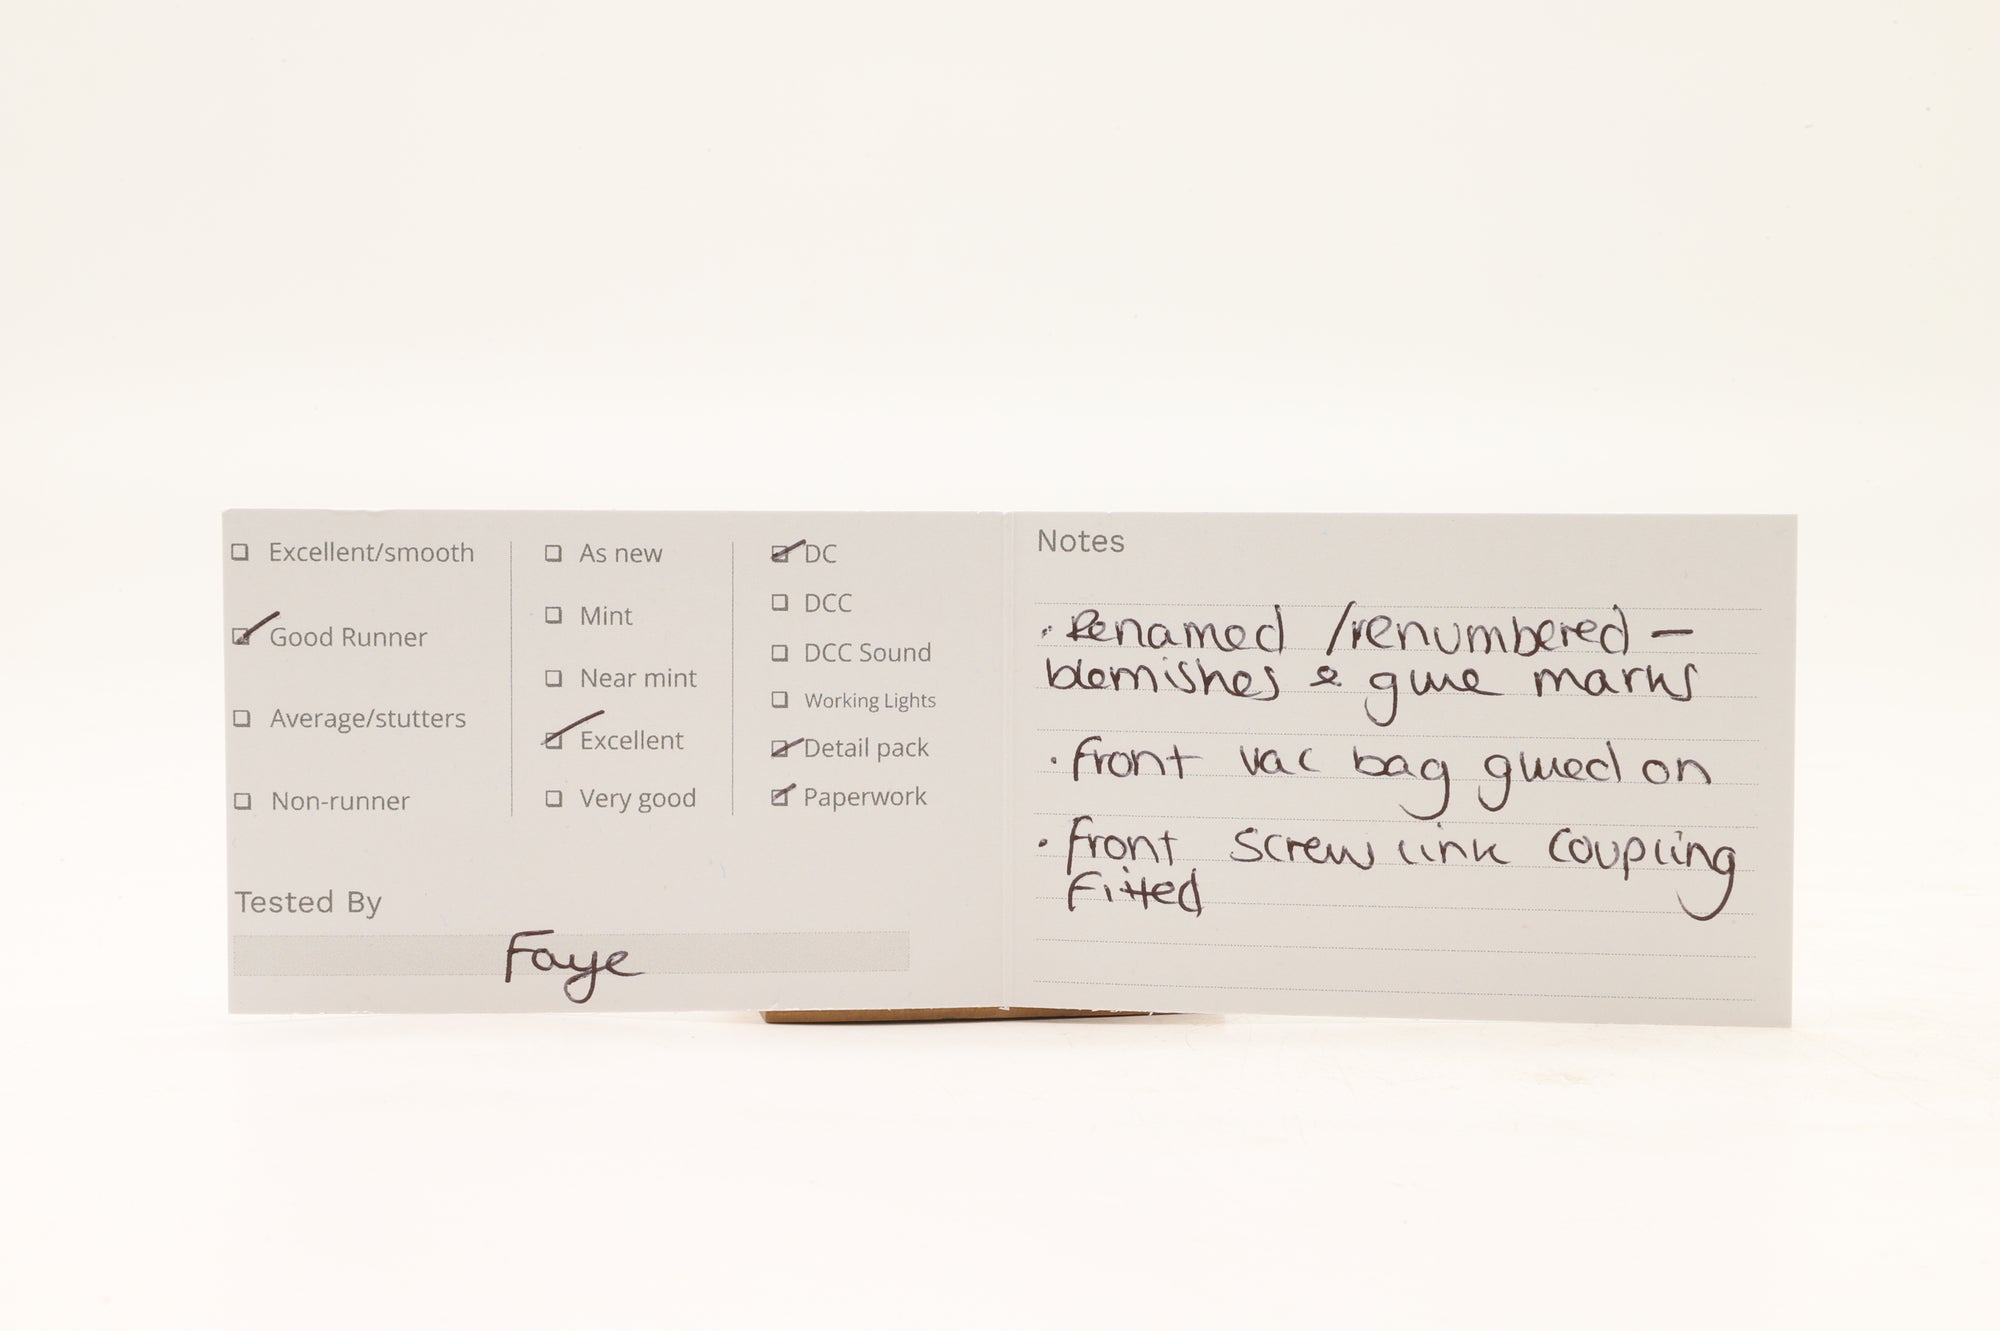 Excellent/smooth
Good Runner
Average/stutters
Non-runner
As new
Mint
Near mint
Excellent
Very good
DC
DCC
DCC Sound
Working Lights
Detail pack
Paperwork
Tested By
Faye
Notes
• Renamed /renumbered –
blemishes & glue marks
• front vac bag glued on
• front screw link coupling
fitted